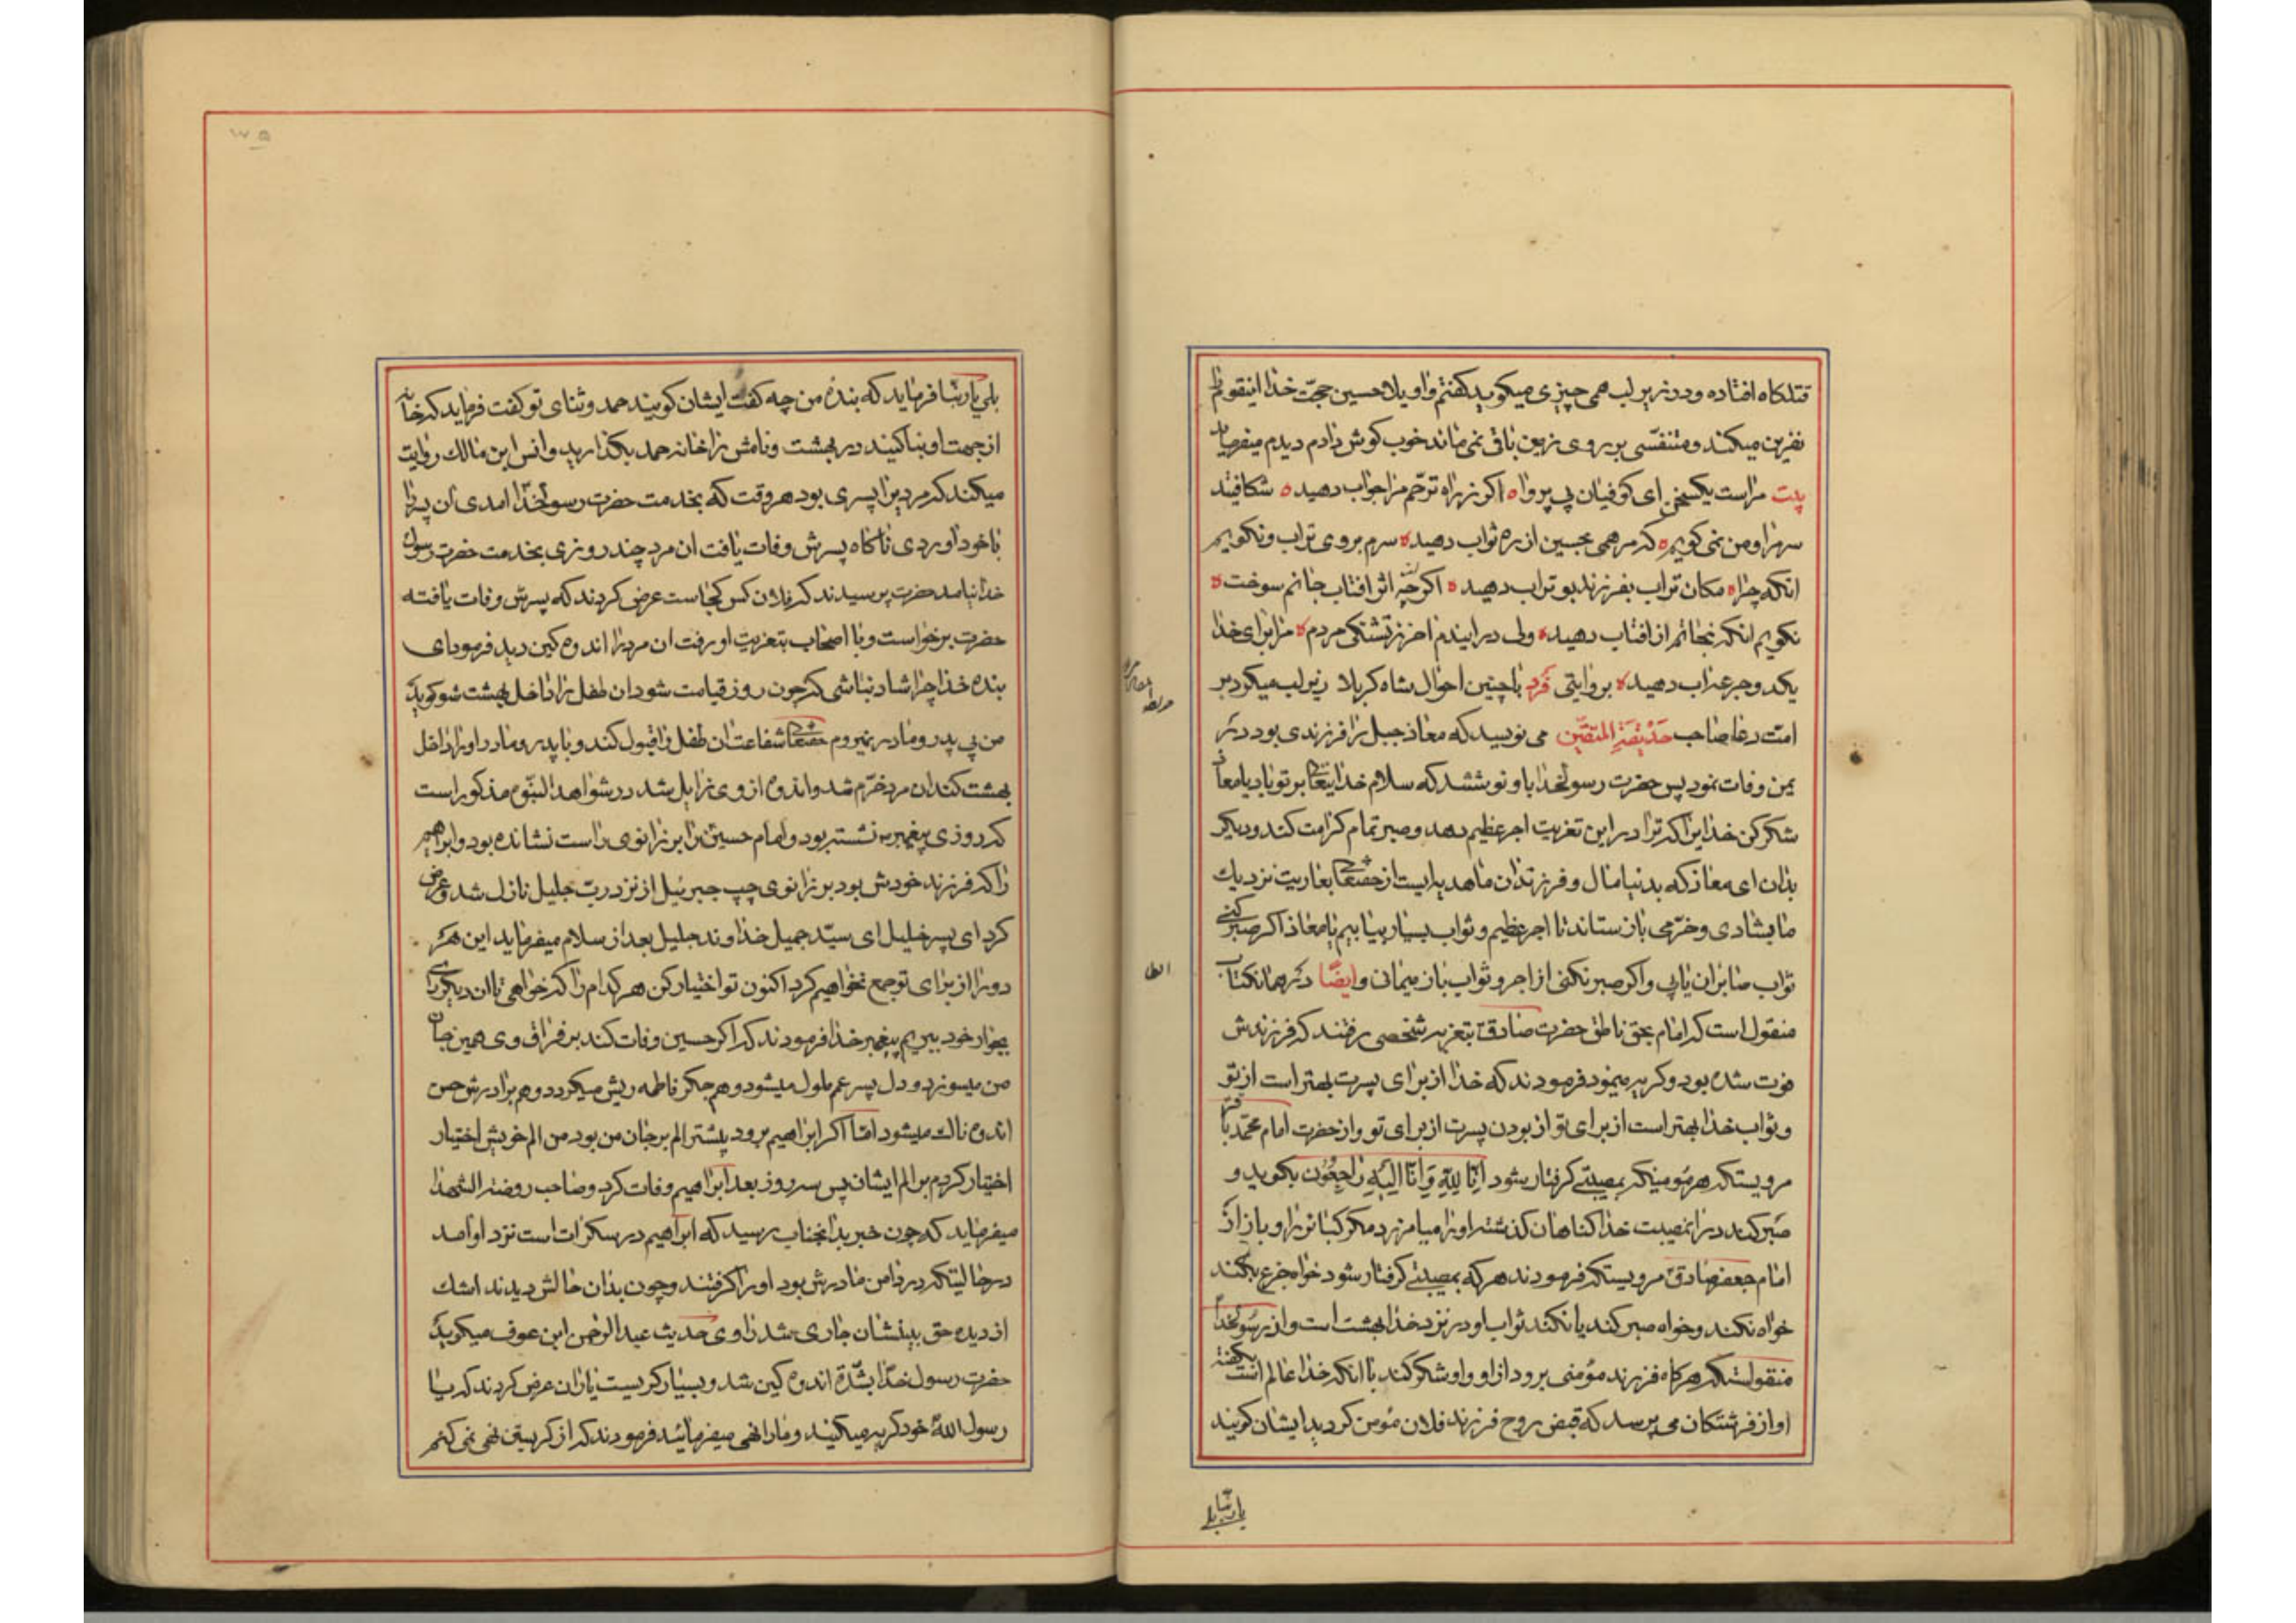 قتلکاه افتاده ودر زیر لب همی چیزی میکوید کفتم واویلا حسین حجّت خدا اینقوم را
نفرین میکند ومتنفّسی بر روی زمین باقی نمی ماند خوب کوش دادم دیدم میفرماید
بیت مراست یکسخن ای کوفیان بی پروا ه اکر ز راه ترحّم مرا جواب دهید ه شکافتید
سرم را ومن نمی کویم ه که مرهمی بحسین از ره ثواب دهید ه سرم بروی تراب ونکویم
انکه چرا ه مکان تراب بفرزند بو تراب دهید ه اکرچه از اثر افتاب جانم سوخت ه
نکویم انکه نجاتم از افتاب دهید ه ولی در ایندم اخر ز تشنکی مردم ه مرا برای خدا
یکدو جرعه اب دهید ه بروایتی فرد باچنین احوال شاه کربلا زیر لب میکرد بر
امت دعا صاحب حَدْیقَةِ المتّقین می نویسد که معاذ جبل را فرزندی بود در
یمن وفات نمود پس حضرت رسولخدا باو نوشتند که سلام خدایتعالی بر تو باد یا معاذ
شکر کن خدایرا که ترا در این تعزیت اجر عظیم دهد وصبر تمام کرامت کند ودیکر
بدان ای معاذ که بدنیا مال وفرزندان ما هدیه ایست از حقتعالی بعاریت نزدیک
ما بشادی وخرّمی باز ستاند تا اجر عظیم وثواب بسیار بیابیم یا معاذ اکر صبر کنی
ثواب صابران یابی واکر صبر نکنی از اجر وثواب باز میمانی وایضًا در همان کتاب
منقول است که امام بحق ناطق حضرت صادق بتعزیه شخصی رفتند که فرزندش
فوت شده بود وکریه مینمود فرمودند که خدا از برای پسرت بهتر است از تو
وثواب خدا بهتر است از برای تو از بودن پسرت از برای تو واز حضرت امام محمّد باقر
مرویستکه هر مؤمنیکه بمصیبتی کرفتار شود اِنّا لِلّهِ وَاِنّا اِلَیْهِ راجِعُون بکوید و
صبر کند در انمصیبت خدا کناهان کذشته او را میامرزد مکر کبائر را وباز از
امام جعفر صادق مرویستکه فرمودند هر که بمصیبتی کرفتار شود خواه جزع بکند
خواه نکند وخواه صبر کند یا نکند ثواب او در نزد خدا بهشت است واز رسولخدا
منقولستکه هرکاه فرزند مؤمنی برود از او واو شکر کند با انکه خدا عالم است بکفته
او از فرشتکان می پرسد که قبض روح فرزند فلان مؤمن کردید ایشان کویند
یا ربنا بلی
بلی یا ربّنا فرماید که بنده من چه کفت ایشان کویند حمد وثنای تو کفت فرماید که خانه
از جهت او بنا کنید در بهشت ونامش را خانه حمد بکذارید وانس ابن مالک روایت
میکند که مردیرا پسری بود هر وقت که بخدمت حضرت رسولخدا امدی ان پسر را
با خود اوردی ناکاه پسرش وفات یافت ان مرد چند روزی بخدمت حضرت رسول
خدا نیامد حضرت پرسیدند که فلان کس کجاست عرض کردند که پسرش وفات یافته
حضرت برخواست وبا اصحاب بتعزیت او رفت ان مرد را اندوه کین دید فرمود ای
بنده خدا چرا شاد نباشی که چون روز قیامت شود ان طفل را داخل بهشت شو کوید
من بی پدر ومادر نمیروم حقتعالی شفاعت ان طفل را قبول کند وبا پدر ومادر او را داخل
بهشت کند ان مرد خرّم شد واندوه از وی زایل شد در شواهد النبّوه مذکور است
که روزی پیغمبر نشسته بود وامام حسین را بر زانوی راست نشانده بود وابراهیم
را که فرزند خودش بود بر زانوی چپ جبرئیل از نزد ربّ جلیل نازل شد وعرض
کرد ای پسر خلیل ای سیّد جمیل خداوند جلیل بعد از سلام میفرماید این هر
دو را از برای تو جمع نخواهیم کرد اکنون تو اختیار کن هر کدام را که خواهی تا ان دیکری را
بجوار خود ببریم پیغمبر خدا فرمودند که اکر حسین وفات کند بر فراق وی همین جان
من میسوزد ودل پسر عم ملول میشود وهم جکر فاطمه ریش میکردد وهم برادرش حسن
اندوه ناک میشود امّا اکر ابراهیم برود بیشتر الم بر جان من بود من الم خویش اختیار
اختیار کردم بر الم ایشان پس سه روز بعد ابراهیم وفات کرد وصاحب روضة الشهدا
میفرماید که چون خبر بدانجناب رسید که ابراهیم در سکرات است نزد او امد
در حالیتکه در دامن مادرش بود او را کرفتند وچون بدان حالش دیدند اشک
از دیده حق بینشان جاری شد راوی حدیث عبد الرحمن ابن عوف میکوید
حضرت رسول خدا بشدّة اندوه کین شد وبسیار کریست یاران عرض کردند که یا
رسول اللّه خود کریه میکنید وما را نهی میفرمائید فرمودند که از کریستن نهی نمی کنم